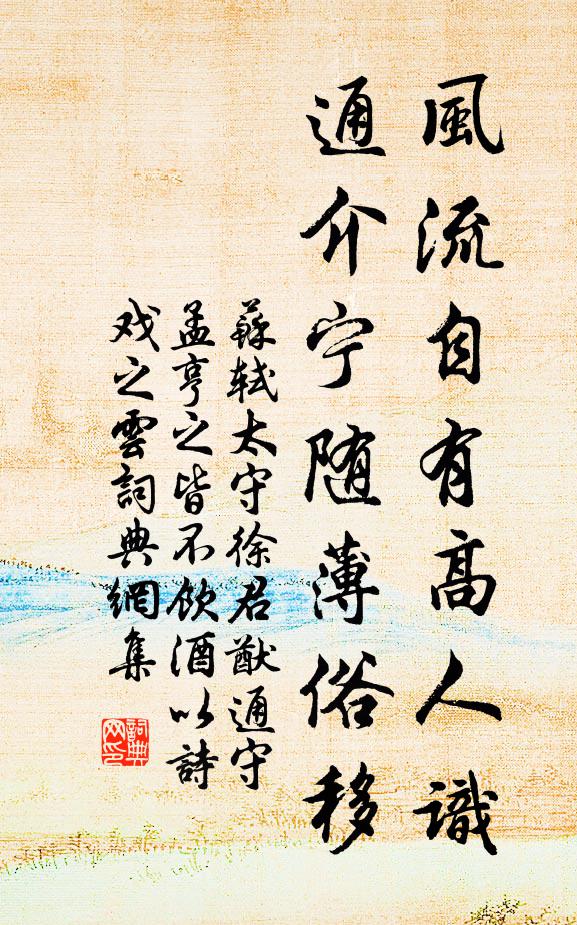 風流自有高人識
通介宁随薄俗移
蘇軾太守徐君猷通守
孟亨之皆不飲酒以詩
戏之雲詞典網集
詞典网印